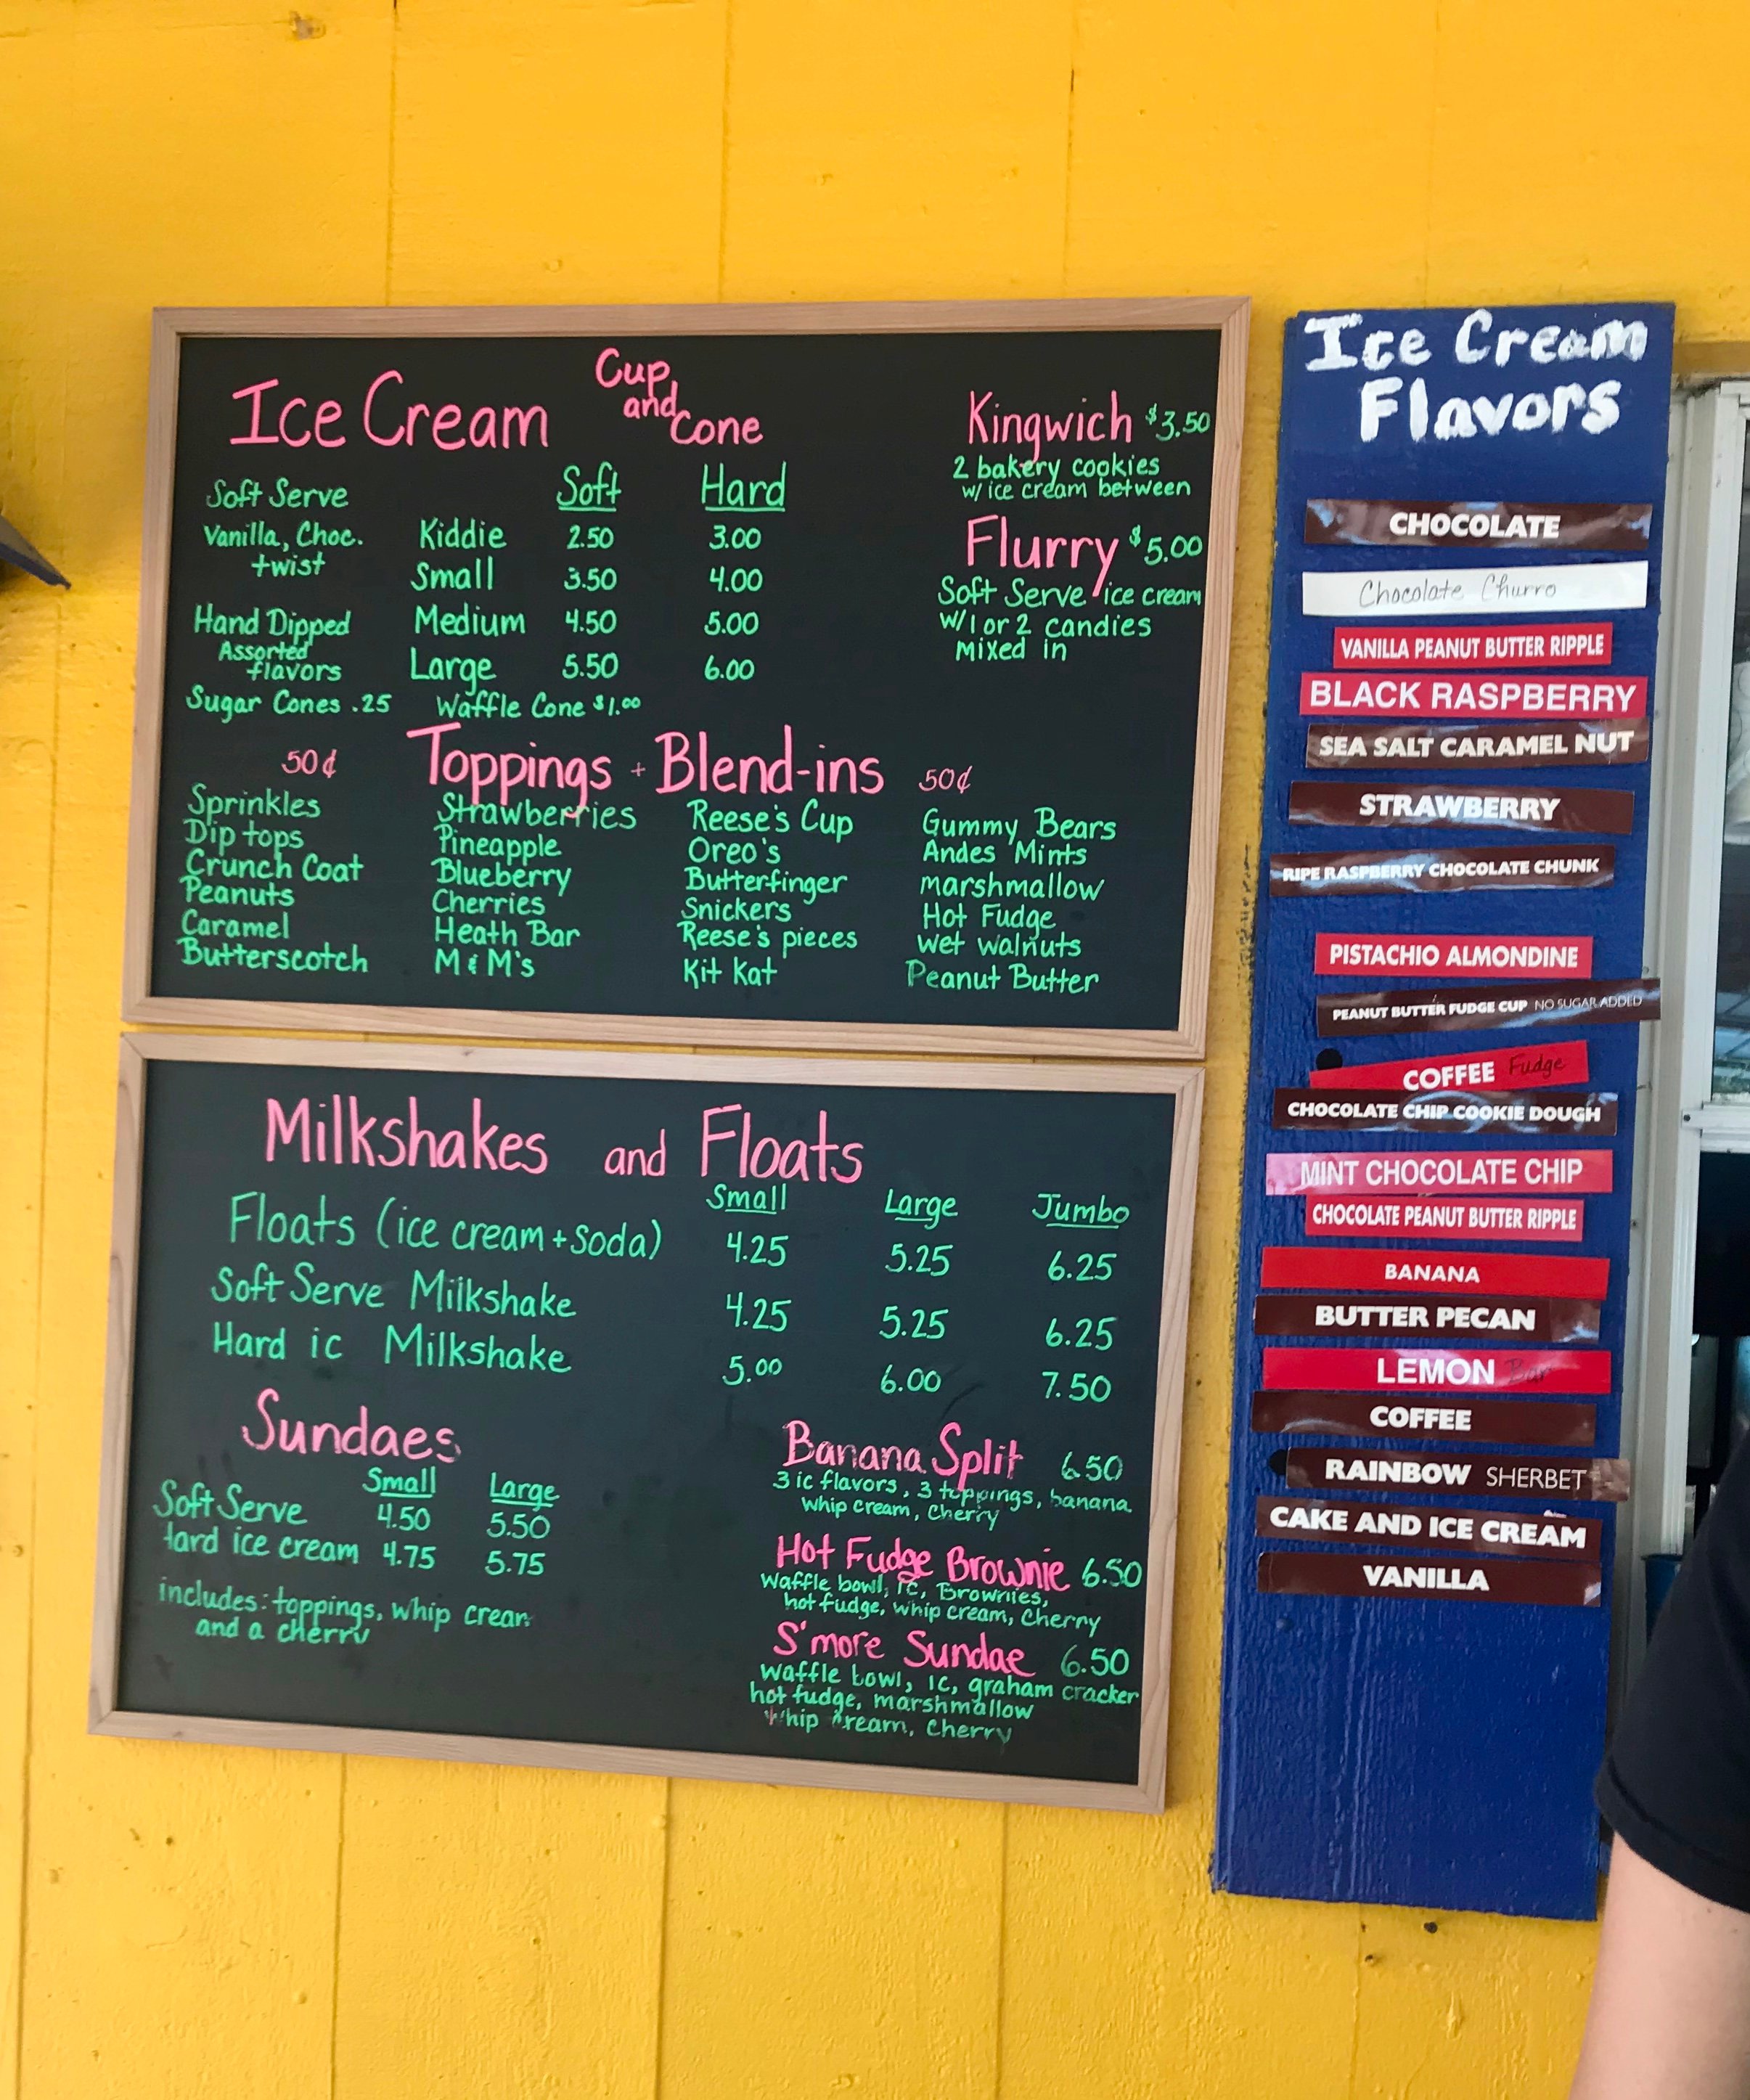 Ice Cream Cup and Cone
Soft Hard
Soft Serve
Vanilla, Choc.
+wist
Hand Dipped
Assorted
flavors
Kiddie 2.50 3.00
Small 3.50 4.00
Medium 4.50 5.00
Large 5.50 6.00
Sugar Cones .25 Waffle Cone $1.00
Kingwich $3.50
2 bakery cookies
w/ ice cream between
Flurry $5.00
Soft Serve ice cream
w/1 or 2 candies
mixed in
50¢ Toppings + Blend-ins 50¢
Sprinkles
Dip tops
Crunch Coat
Peanuts
Caramel
Butterscotch
Strawberries
Pineapple
Blueberry
Cherries
Heath Bar
M & M's
Reese's Cup
Oreo's
Butterfinger
Snickers
Reese's pieces
Kit Kat
Gummy Bears
Andes Mints
marshmallow
Hot Fudge
wet walnuts
Peanut Butter
Milkshakes and Floats
Small Large Jumbo
Floats (ice cream + Soda) 4.25 5.25 6.25
Soft Serve Milkshake 4.25 5.25 6.25
Hard ic Milkshake 5.00 6.00 7.50
Sundaes
Small Large
Soft Serve 4.50 5.50
Hard ice cream 4.75 5.75
includes: toppings, whip cream
and a cherry
Banana Split 6.50
3 ic flavors, 3 toppings, banana
whip cream, cherry
Hot Fudge Brownie 6.50
Waffle bowl, ic, Brownies,
hot fudge, whip cream, cherry
S'more Sundae 6.50
Waffle bowl, ic, graham cracker
hot fudge, marshmallow
whip cream, cherry
Ice Cream
Flavors
CHOCOLATE
Chocolate Churro
VANILLA PEANUT BUTTER RIPPLE
BLACK RASPBERRY
SEA SALT CARAMEL NUT
STRAWBERRY
RIPE RASPBERRY CHOCOLATE CHUNK
PISTACHIO ALMONDINE
PEANUT BUTTER FUDGE CUP NO SUGAR ADDED
COFFEE Fudge
CHOCOLATE CHIP COOKIE DOUGH
MINT CHOCOLATE CHIP
CHOCOLATE PEANUT BUTTER RIPPLE
BANANA
BUTTER PECAN
LEMON Bar
COFFEE
RAINBOW SHERBET
CAKE AND ICE CREAM
VANILLA